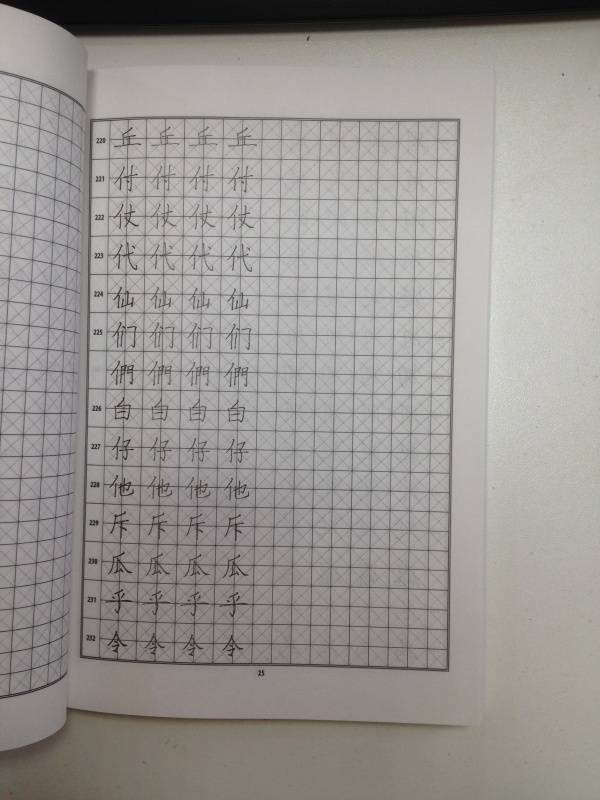 220 丘 丘 丘 丘
221 付 付 付 付
222 仗 仗 仗 仗
223 代 代 代 代
224 仙 仙 仙 仙
225 们 们 们 们
們 們 們 們
226 白 白 白 白
227 仔 仔 仔 仔
228 他 他 他 他
229 斥 斥 斥 斥
230 瓜 瓜 瓜 瓜
231 乎 乎 乎 乎
232 令 令 令 令
25